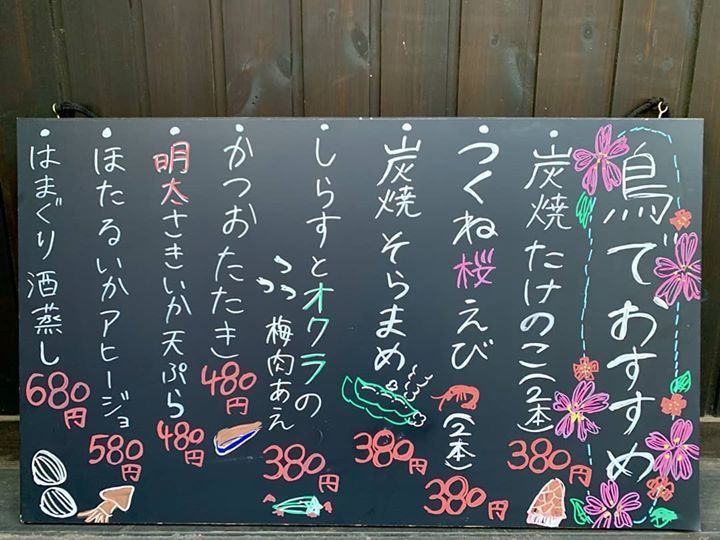 鳥でおすすめ
・炭焼たけのこ(2本)
380円
・つくね桜えび(2本)
380円
・炭焼そらまめ
380円
・しらすとオクラの
梅肉あえ
380円
・かつおたたき
480円
・明太さきいか天ぷら
480円
・ほたるいかアヒージョ
580円
・はまぐり酒蒸し
680円